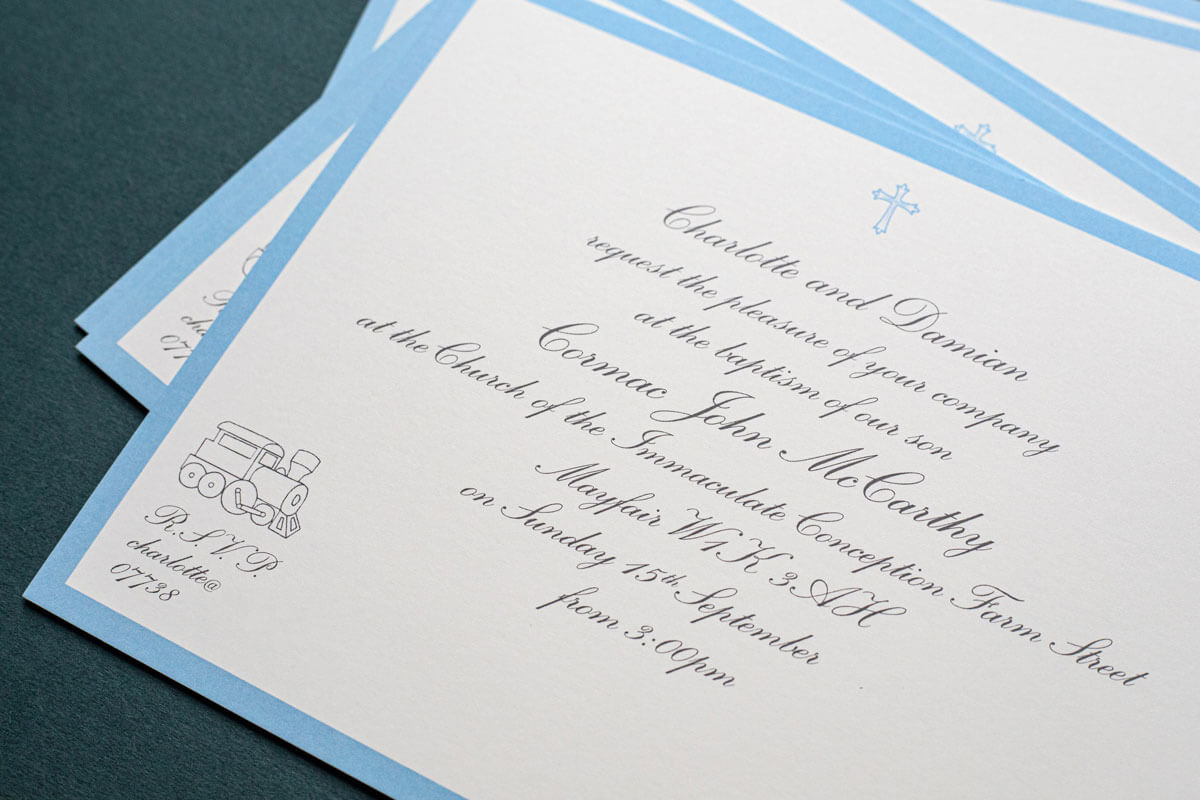 Charlotte and Damian
request the pleasure of your company
at the baptism of our son
Cormac John McCarthy
at the Church of the Immaculate Conception Farm Street
Mayfair W1K 3AH
on Sunday 15th September
from 3:00pm
R.S.V.P.
charlotte@
07738